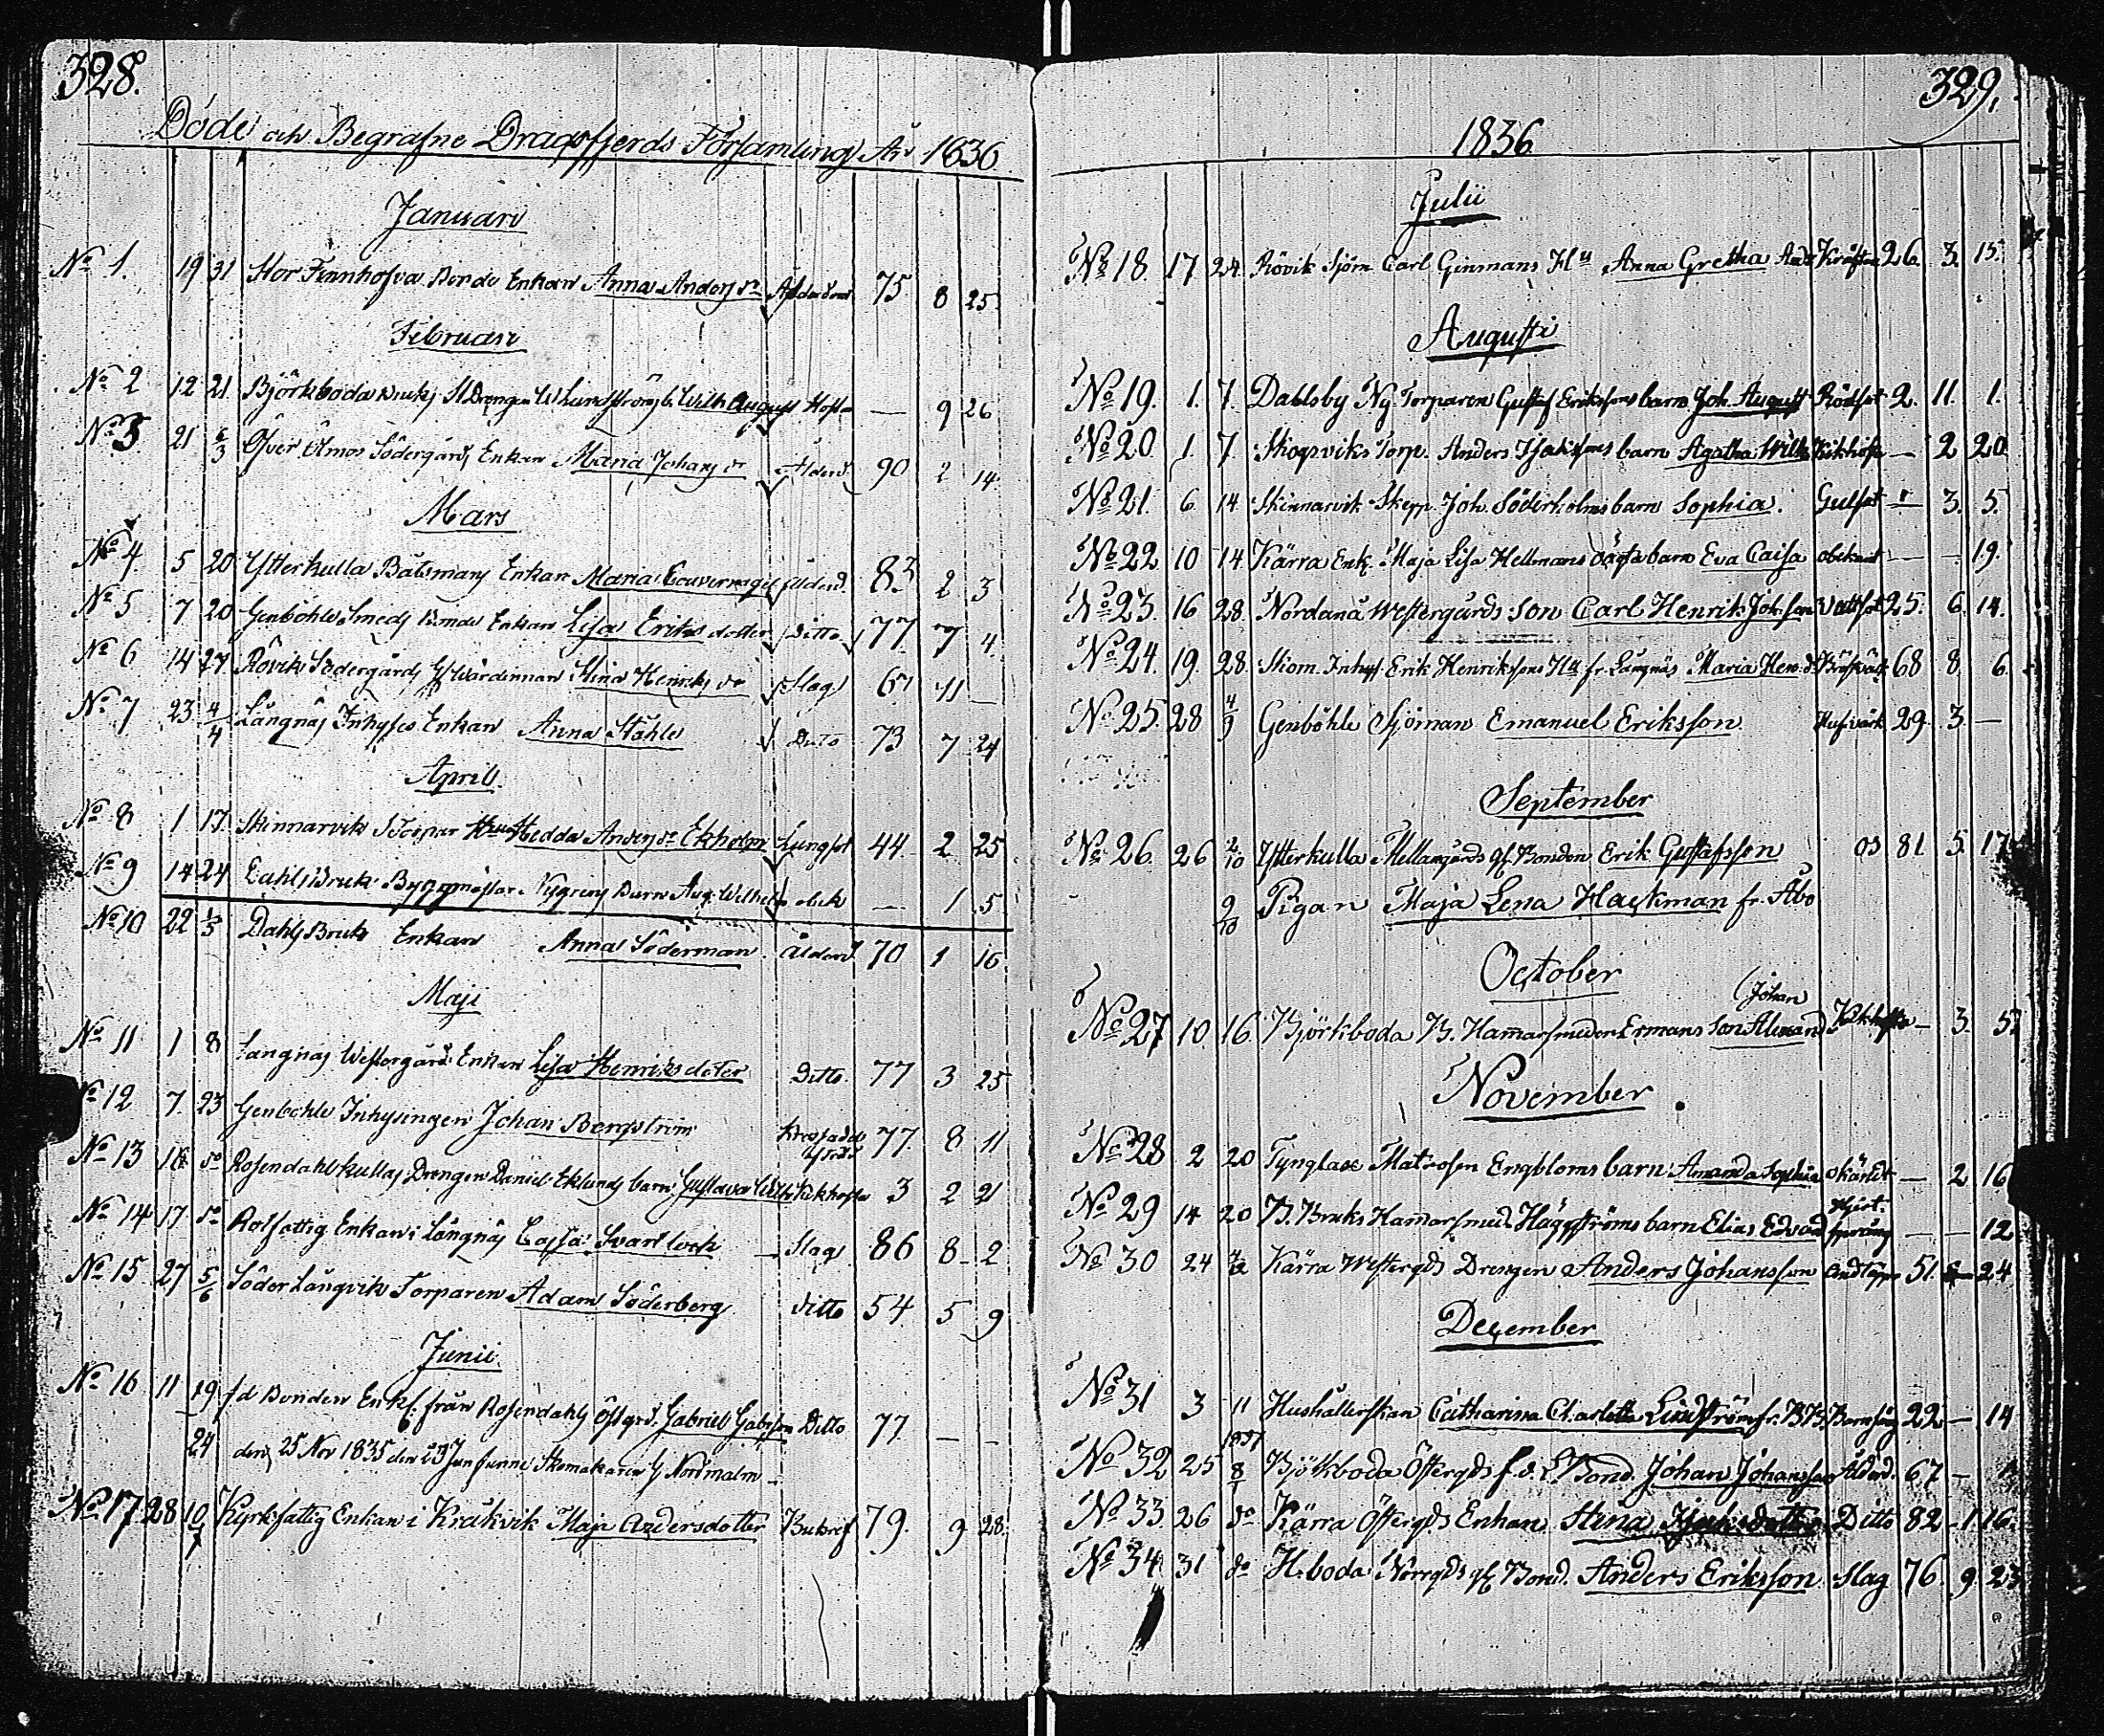 328.
Döde och Begrafne Dragsfjerds Församling År 1836.
Januari
No 1. 19 31 Stor Finnhofva Bonde Enkan Anna Anders dr Ålderdom 75 8 25.
Februari
No 2 12 21 Björkboda Bruks St Drengen Lundströms b. Wilh August Hosta — 9 26
No 3 21 6/3 Öfver Ölmos Södergårds Enkan Maria Johans dr Ålderd. 90 2 14
Mars
No 4 5 20 Ytterkulla Båtsmans Enkan Maria Ålderd. 83 2 3
No 5 7 20 Genböhle Smeds Bonde Enkan Lisa Eriks dotter Ditto 77 7 4.
No 6 14 27 Rövik Södergårds Wärdinnan Stina Henriks dr Slag 67 11 —
No 7 23 4/4 Långnäs Inhyses Enkan Anna Ståhle Ditto 73 7 24
April.
No 8 1 17 Skinnarvik Torpar Hru Hedda Anders dr Ekholm Lungsot 44 2 25
No 9 14 24 Dahls Bruk Byggmästar Nygrens Barn Aug. Wilhelm obek — 1 5
No 10 22 1/5 Dahls Bruk Enkan Anna Söderman. Ålderd 70 1 16.
Maji
No 11 1 8 Långnäs Westergårds Enkan Lisa Henriks doter Ditto 77 3 25
No 12 7. 23 Genböhle Inhysingen Johan Bergström 77. 8 11
No 13 18 do Rosendahlskullas Drengen Daniel Eklunds barn Gustava Wilh. Kikhosta 3 2 21
No 14 17 do Rotfattig Enkan i Långnäs Cajsa Svartlock — Slag 86 8 - 2
No 15 27 5/6 Söder Långvik Torparen Adam Söderberg Ditto 54 5 9
Junii.
No 16 11 19 fd Bonden Enkl. från Rosendahls Östgrd. Gabriel Gabrsson Ditto 77. — —
24 den 25 Nov 1835 den 23 Jun funne Skomakaren Nordmalm —
No 17 28 10/7 Kyrkfattig Enkan i Kråkvik Maja Andersdotter Bukref 79. 9 28.
329.
1836
Julii
No 18. 17 24. Rövik Sjöm Carl Ginmans Hu Anna Gretha Kräftan 26. 3. 15.
Augusti
No 19. 1. 7. Dahlsby Ny Torparen Gustaf Erikssons barn Joh. August Rödsot 2. 11. 1.
No 20. 1. 7. Skogsviks Torp. Anders barn Agatha Wilh. Kikhosta — 2 20
No 21. 6 14 Skinnarvik Skepp. Joh. Söderholms barn Sophia. Gulsot — 3. 5.
No 22 10 14 Kärra Enk. Maja Lisa Hellmans oägta barn Eva Caisa obekant — — 19.
No 23. 16 28. Nordanå Westergårds Son Carl Henrik Johsson Vattsot 25. 6 14.
No 24. 19. 28. Inhys. Erik Henrikssons Hu fr. Långnäs Maria Hen. dr 68 8. 6.
No 25. 28 4/9 Genböhle Sjöman Emanuel Eriksson. Hufvärk 29. 3. —
September
No 26. 26 2/10 Ytterkulla Mellangårds gl. Bonden Erik Gustafsson 81 5. 17.
9/10 Pigan Maja Lena Hackman fr. Åbo
October
(Johan
No 27 10 16. Björkboda B. Hammarsmeden Ermans Son Alexand Kikhosta — 3. 5.
November
No 28. 2 20 Tynglax Matrosen Engbloms barn Amanda Sophia okändt — 2 16
No 29 14 20 B. Bruks Hammarsmed Häggströms barn Elias Edvard — — 12
No 30 24 Kärra Westergds Drengen Anders Johansson Andtäppa 51. 24
December
No 31 3 11 Hushållerskan Catharina Charlotta Lindström fr. BB. Barnsäng 22 — 14
1837
No 32 25 8/1 Björkboda Östergds f.d. Bond. Johan Johansson Ålderd. 67 — 1
No 33 26 do Kärra Östergds Enkan Stina Ditto 82 — 1 16.
No 34 31 do H:boda Norrgds gl. Bond. Anders Eriksson Slag 76. 9. 23